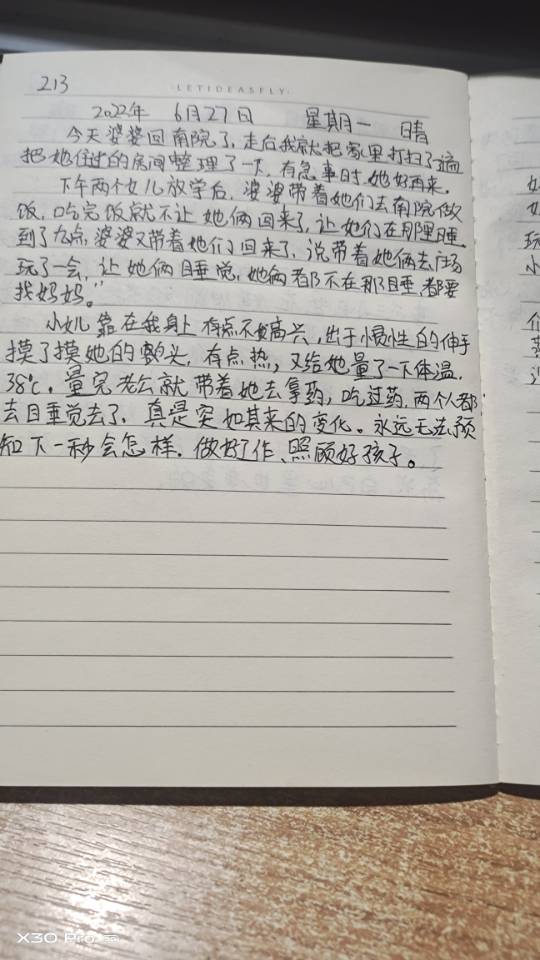 213
LETIDEASFLY
2022年 6月27日 星期一 晴
今天婆婆回南院了,走后我就把家里打扫了遍
把她住过的房间整理了一下,有急事时,她好再来。
下午两个女儿放学后,婆婆带着她们去南院做
饭,吃完饭就不让她俩回来了,让她们在那里睡
到了九点,婆婆又带着她们回来了,说带着她俩去广场
玩了一会,让她俩睡觉,她俩都不在那睡,都要
找妈妈。”
小女儿靠在我身上有点不高兴,出于惯性的伸手
摸了摸她的额头,有点热,又给她量了一下体温,
38℃。量完老公就带着她去拿药,吃过药,两个人都
去睡觉去了,真是突如其来的变化。永远无法预
知下一秒会怎样,做好工作、照顾好孩子。
X30 Pro